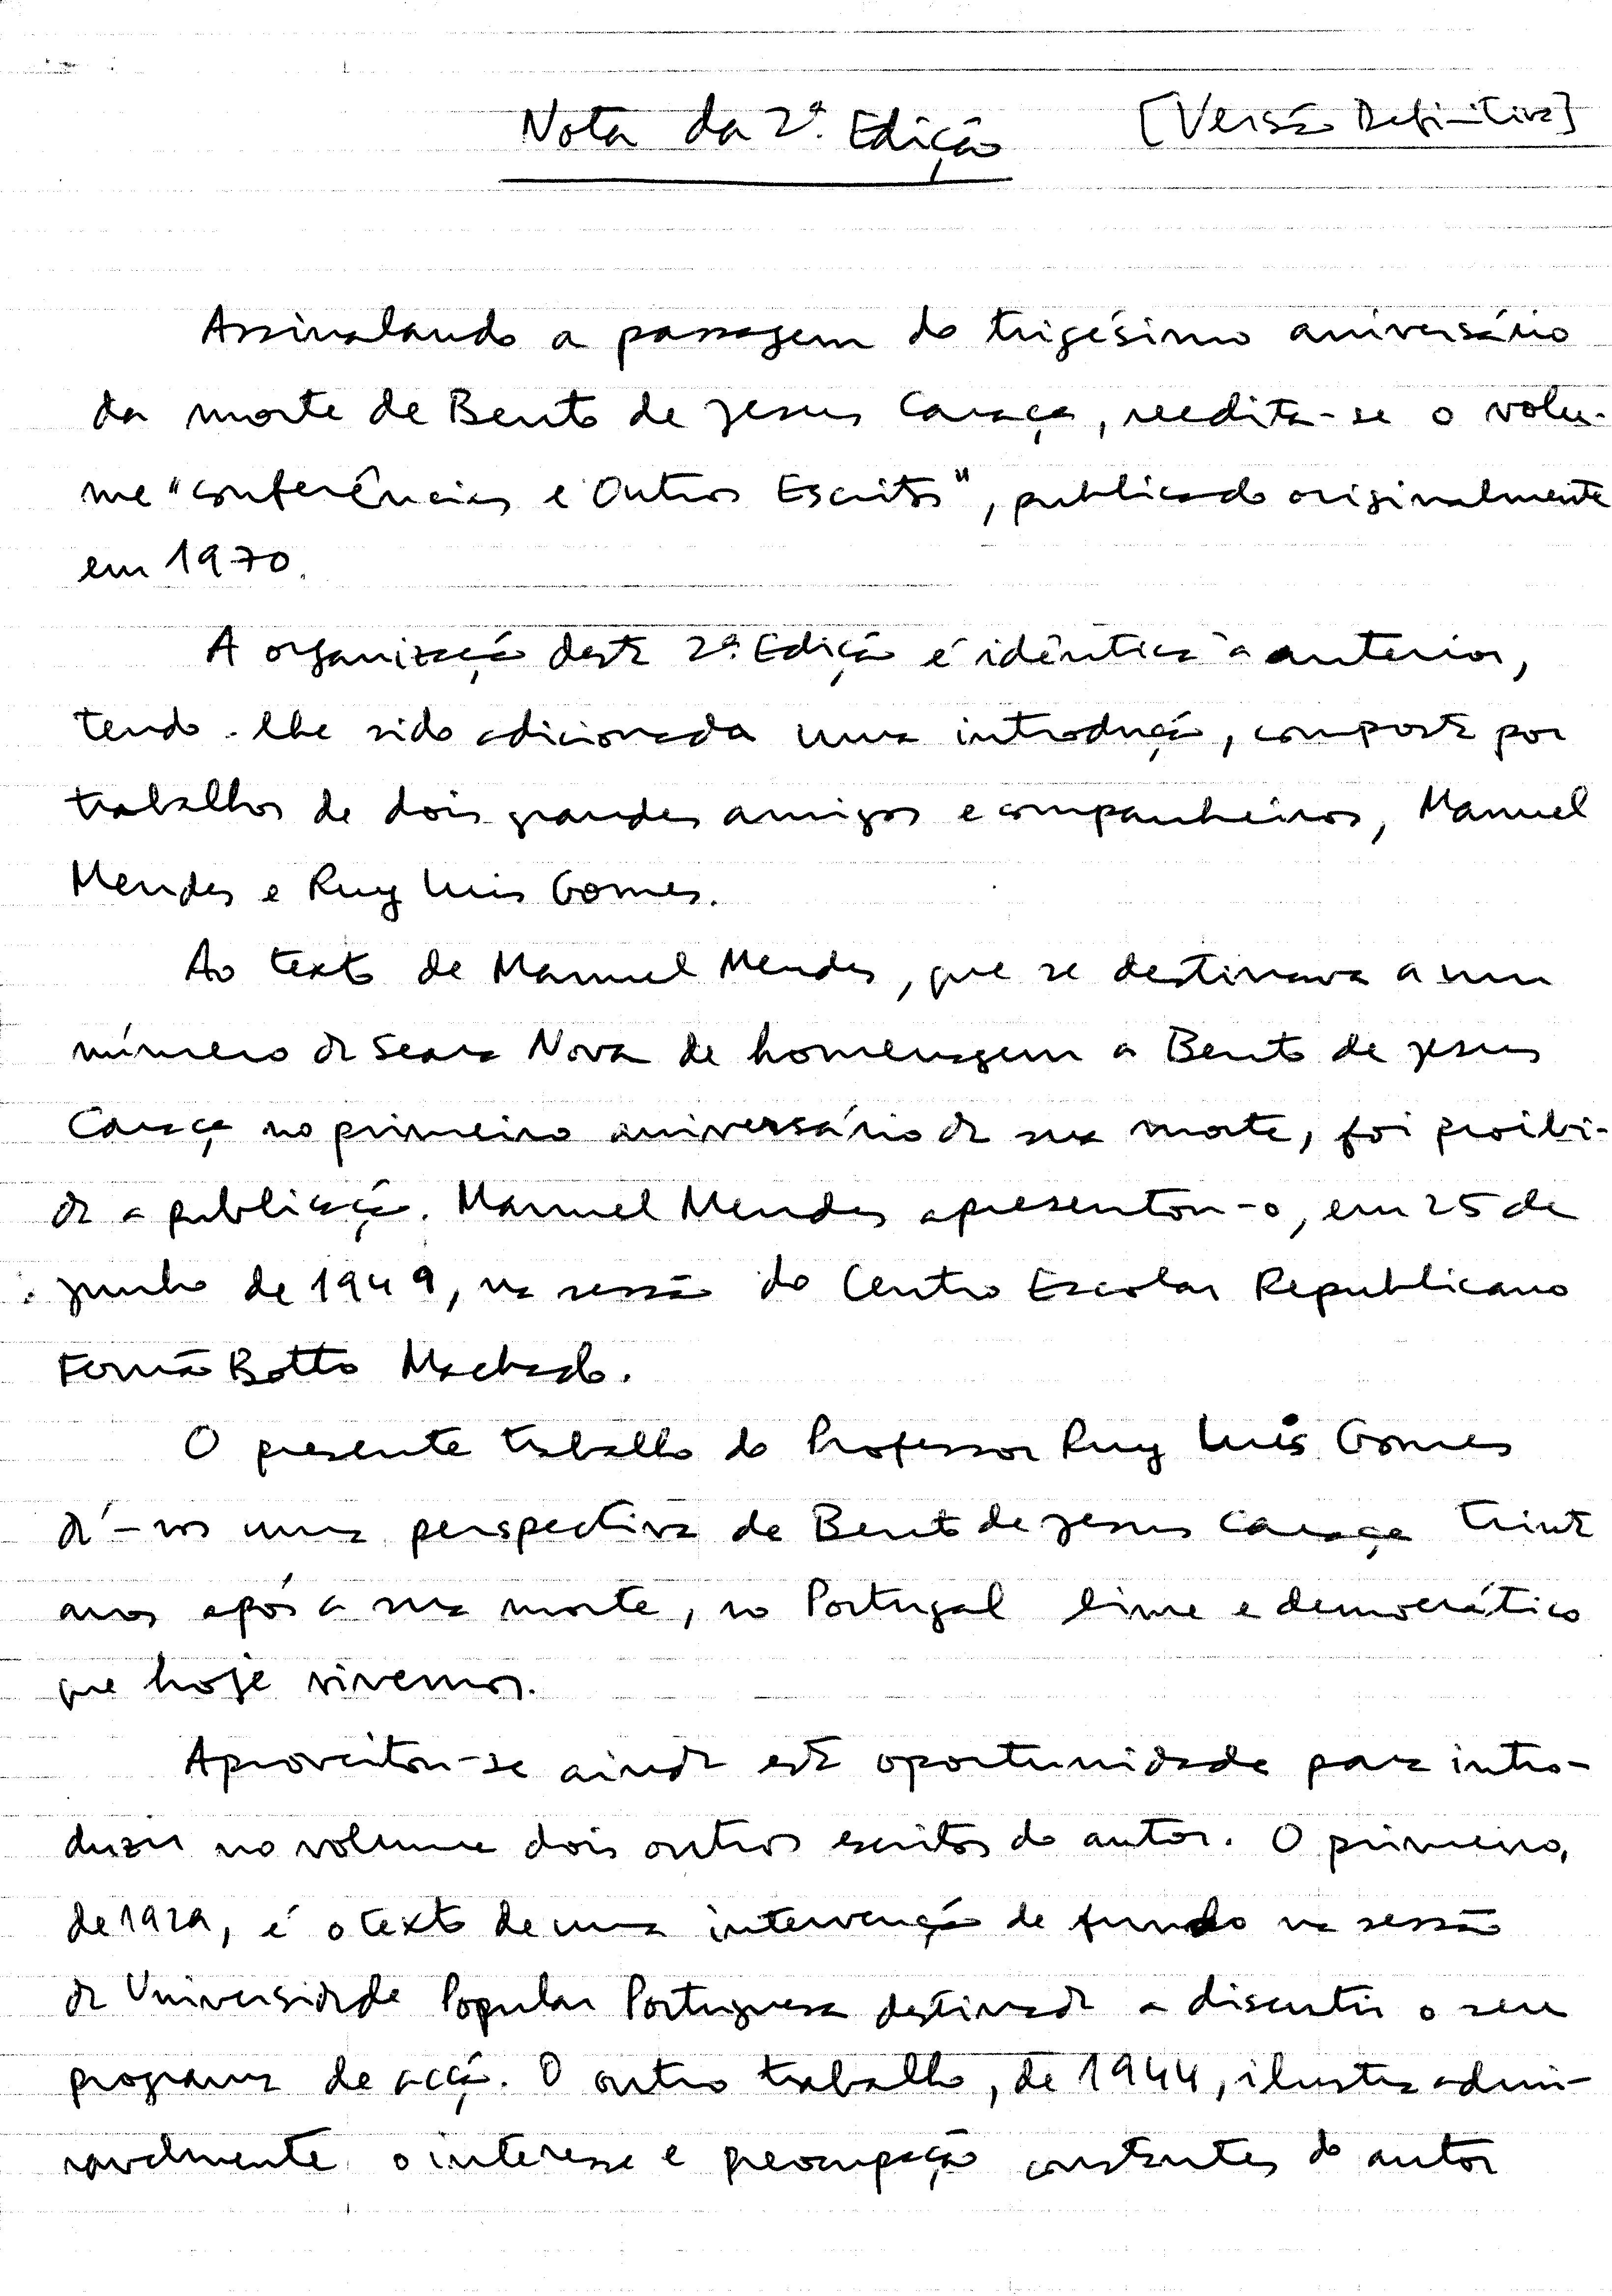 Nota da 2ª. Edição [Versão Definitiva]
Assinalando a passagem do trigésimo aniversário
da morte de Bento de Jesus Caraça, reedita-se o volu-
me "Conferências e Outros Escritos", publicado originalmente
em 1970.
A organização desta 2ª. Edição é idêntica à anterior,
tendo-lhe sido adicionada uma introdução, composta por
trabalhos de dois grandes amigos e companheiros, Manuel
Mendes e Ruy Luis Gomes.
Ao texto de Manuel Mendes, que se destinava a um
número da Seara Nova de homenagem a Bento de Jesus
Caraça no primeiro aniversário da sua morte, foi proibi-
da a publicação. Manuel Mendes apresentou-o, em 25 de
Junho de 1949, na sessão do Centro Escolar Republicano
Fernão Botto Machado.
O presente trabalho do Professor Ruy Luís Gomes
dá-nos uma perspectiva de Bento de Jesus Caraça trinta
anos após a sua morte, no Portugal livre e democrático
que hoje vivemos.
Aproveitou-se ainda esta oportunidade para intro-
duzir no volume dois outros escritos do autor. O primeiro,
de 1929, é o texto de uma intervenção de fundo na sessão
da Universidade Popular Portuguesa destinada a discutir o seu
programa de acção. O outro trabalho, de 1944, ilustra admi-
ravelmente o interesse e preocupação constantes do autor